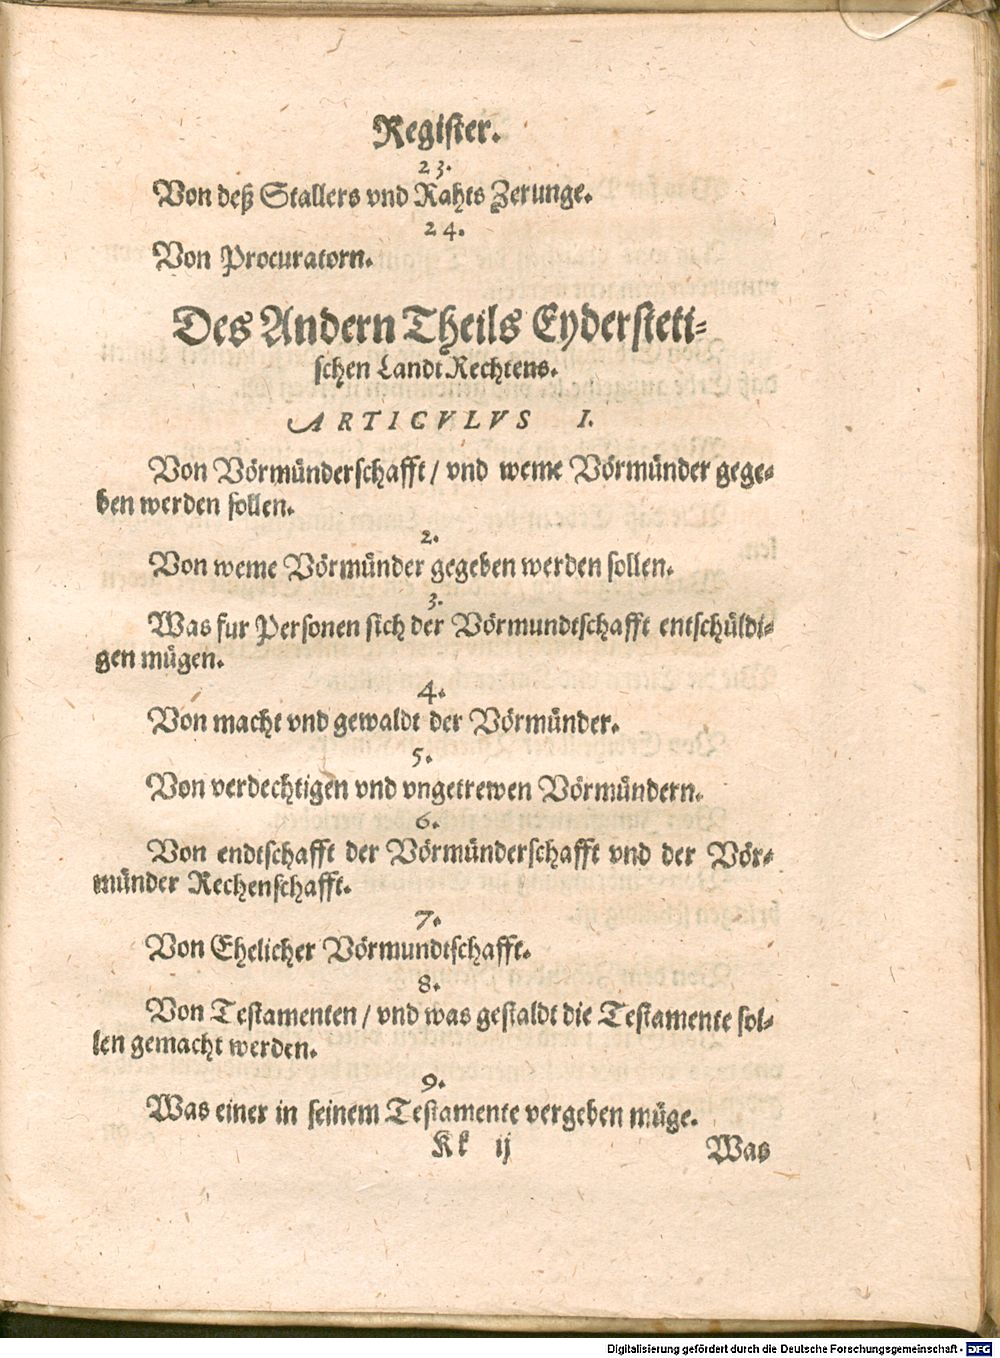 Register.
23.
Von deß Stallers vnd Rahts Zerunge.
24.
Von Procuratorn.
Des Andern Theils Eyderstetti-
schen Landt Rechtens.
ARTICVLVS I.
Von Vörmünderschafft / vnd weme Vörmünder gege-
ben werden sollen.
2.
Von weme Vörmünder gegeben werden sollen.
3.
Was fur Personen sich der Vörmundtschafft entschüldi-
gen mügen.
4.
Von macht vnd gewaldt der Vörmünder.
5.
Von verdechtigen vnd vngetrewen Vörmündern.
6.
Von endtschafft der Vörmünderschafft vnd der Vör-
münder Rechenschafft.
7.
Von Ehelicher Vörmundtschafft.
8.
Von Testamenten / vnd was gestaldt die Testamente sol-
len gemacht werden.
9.
Was einer in seinem Testamente vergeben müge.
Kk ij Was
Digitalisierung gefördert durch die Deutsche Forschungsgemeinschaft - DFG